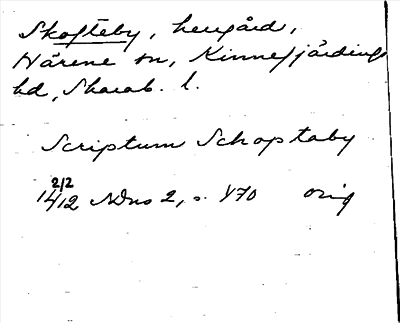 Skofteby, herrgård,
Härene sn, Kinnefjärdings
hd, Skarab. l.
Scriptum Schoptaby
2/2
1412 NDns 2, s. 470 orig